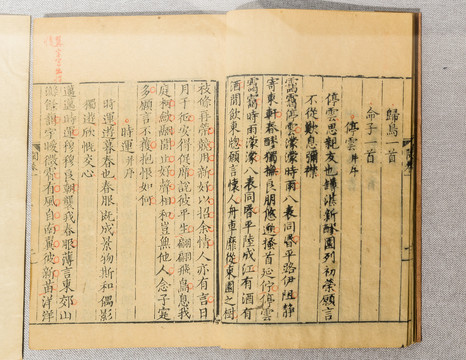 歸鳥一首
命子一首
停雲 并序
停雲思親友也罇湛新醪園列初榮願言
不從歎息彌襟
靄靄停雲濛濛時雨八表同昏平路伊阻靜
寄東軒春醪獨撫良朋悠邈搔首延佇停雲
靄靄時雨濛濛八表同昏平陸成江有酒有
酒閒飲東牕願言懷人舟車靡從東園之樹
枝條再榮競用新好以招余情人亦有言日
月于征安得促席說彼平生翩翩飛鳥息我
庭柯斂翮閒止好聲相和豈無他人念子寔
多願言不獲抱恨如何
時運 并序
時運遊暮春也春服既成景物斯和偶影
獨遊欣慨交心
邁邁時運穆穆良朝襲我春服薄言東郊山
滌餘靄宇曖微霄有風自南翼彼新苗洋洋